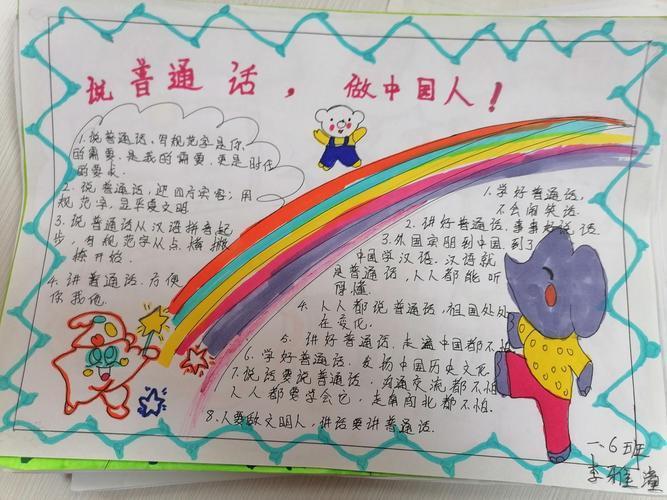 说普通话，做中国人！
1.说普通话、写规范字是你
的需要,是我的需要,更是时代
的要求.
2.说普通话,迎四方宾客;用
规范字,显华夏文明
3.说普通话从汉语拼音起
步,写规范字从点横撇
捺开始.
4.讲普通话.方便
你我他.
1.学好普通话,
不会闹笑话.
2.讲好普通话,事事 话
3.外国宾朋到中国,到了
中国学汉语.汉语就
是普通话,人人都能听
得懂.
4.人人都说普通话,祖国处处
在变化.
5.讲好普通话.走遍中国都不怕
6.学好普通话.发扬中国历史文化
7.说话要说普通话,沟通交流都不怕
人人都要学会它,走南闯北都不怕.
8.人要做文明人,讲话要讲普通话.
一.6班
李雅潼